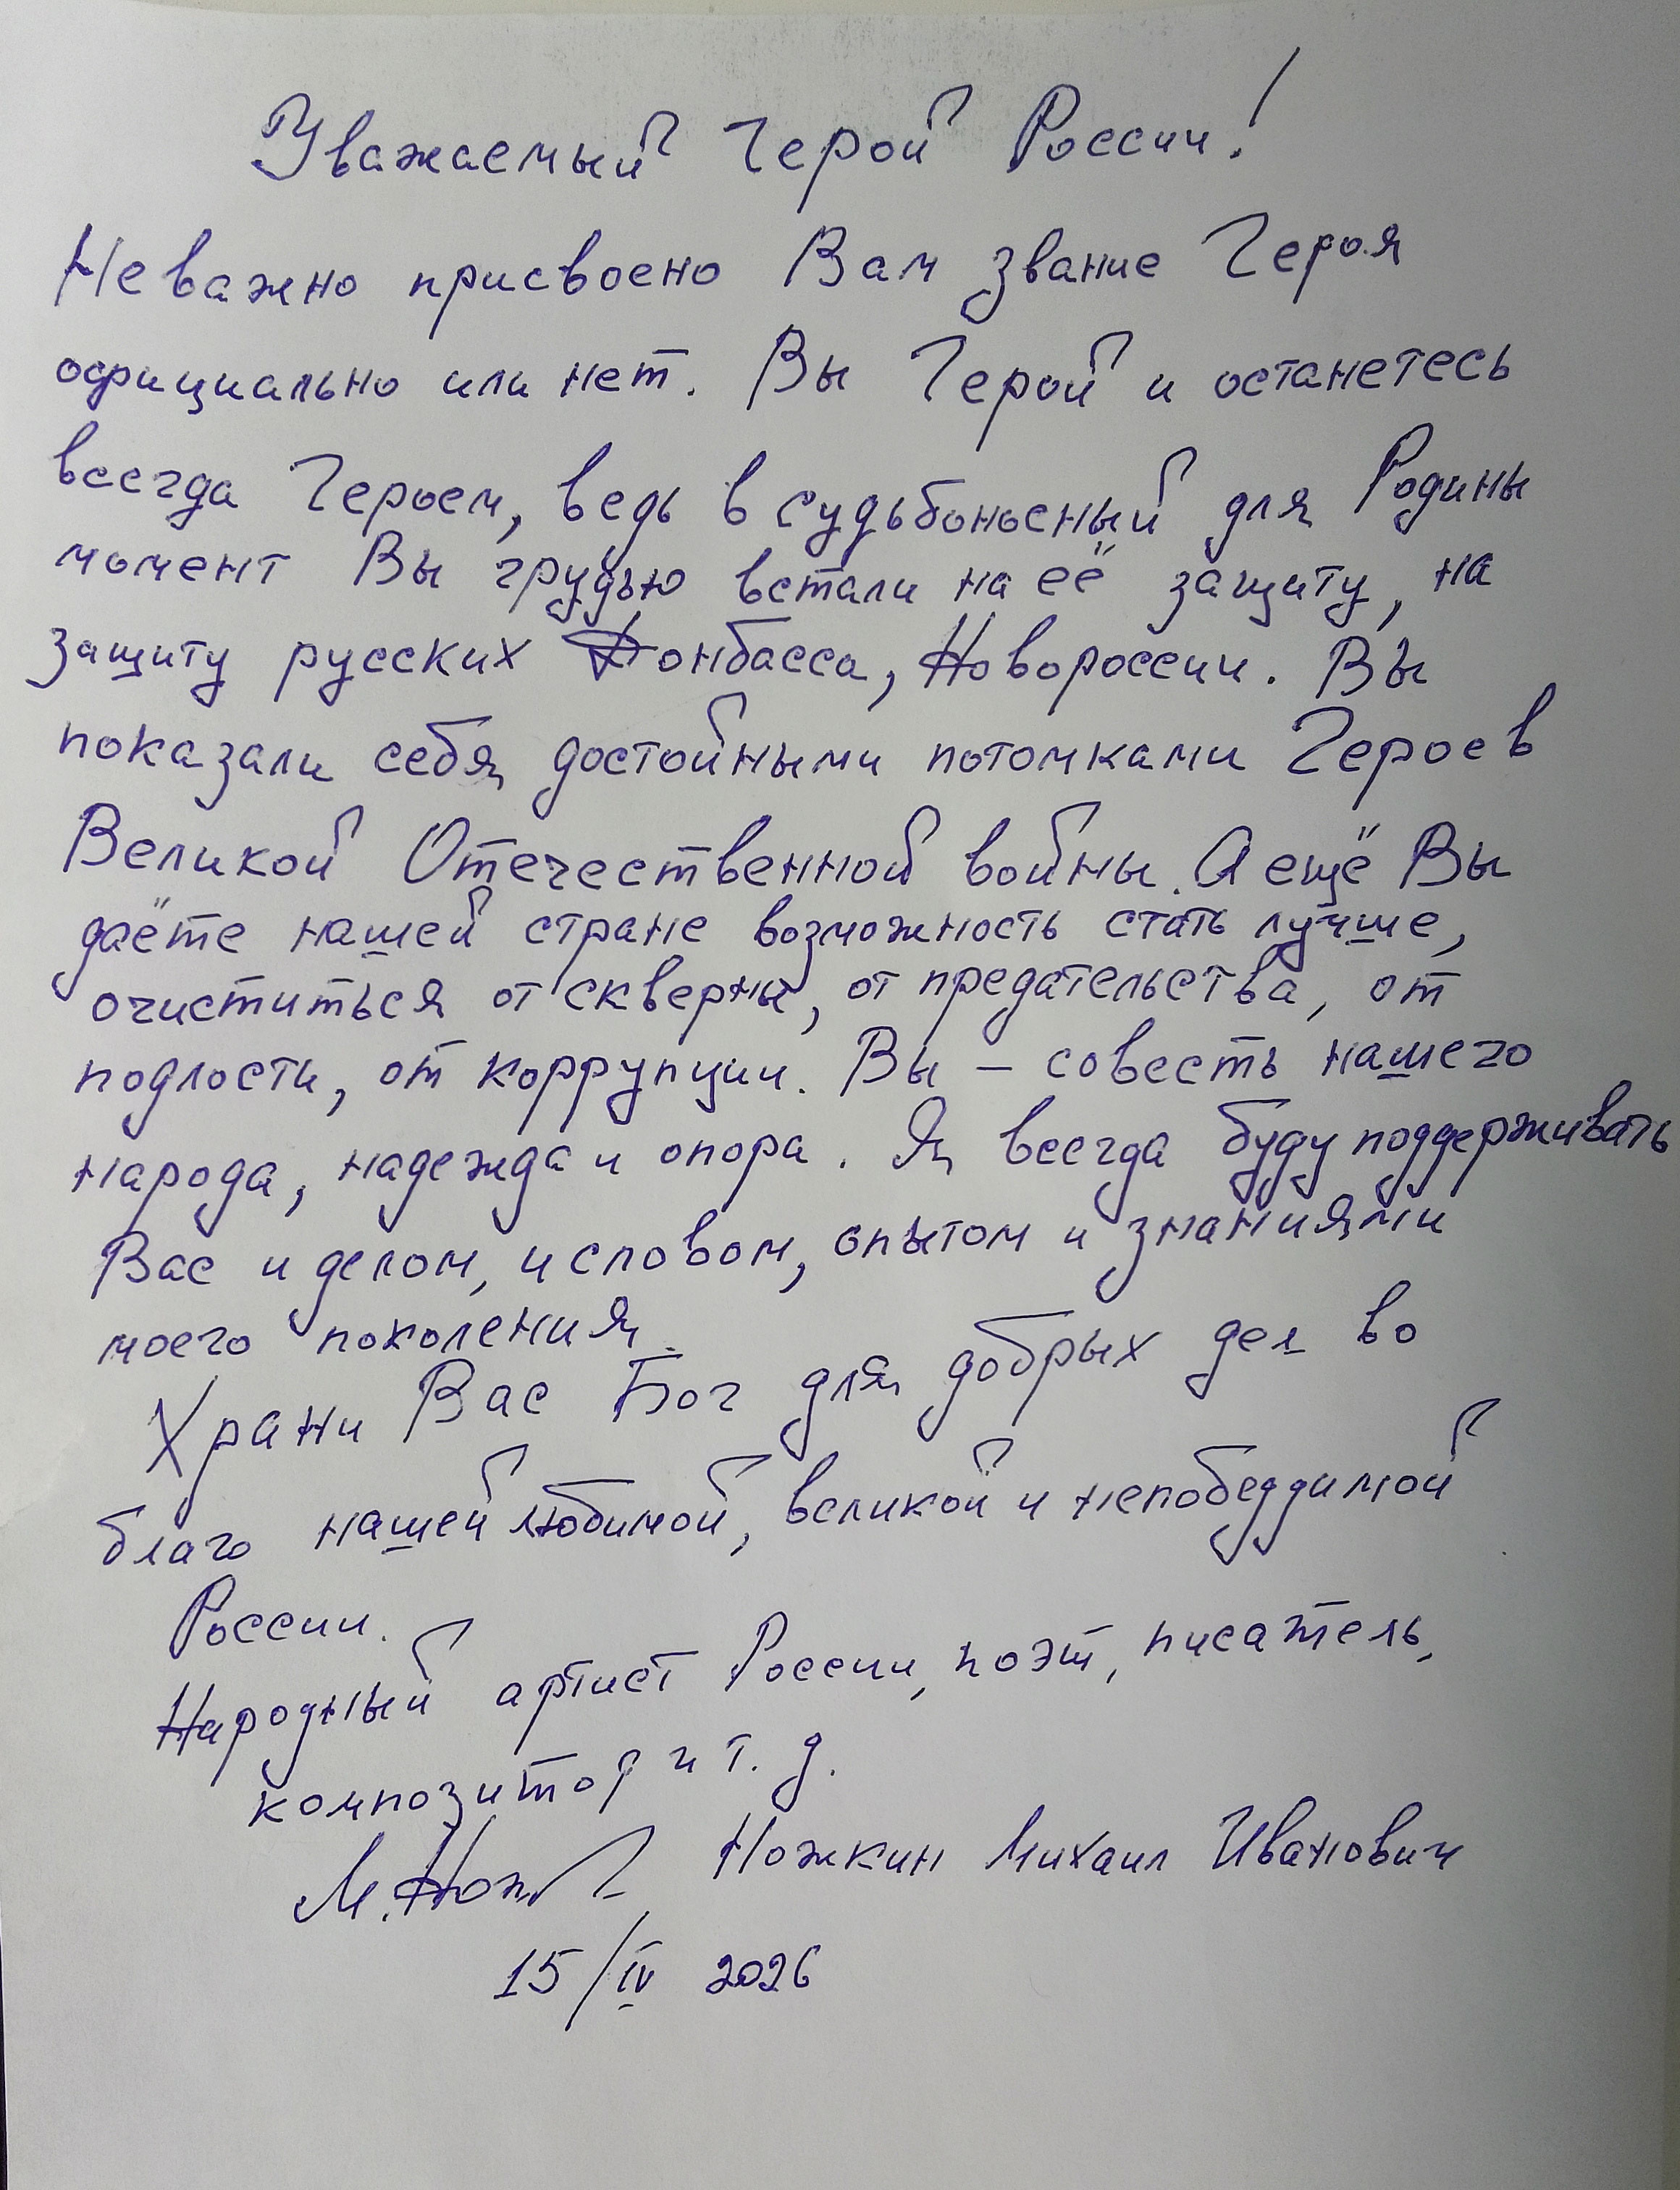 Уважаемый Герой России!
Неважно присвоено Вам звание Героя
официально или нет. Вы Герой и останетесь
всегда Героем, ведь в судьбоносный для Родины
момент Вы грудью встали на её защиту, на
защиту русских Донбасса, Новороссии. Вы
показали себя достойными потомками Героев
Великой Отечественной войны. А ещё Вы
даёте нашей стране возможность стать лучше,
очиститься от скверны, от предательства, от
подлости, от коррупции. Вы – совесть нашего
народа, надежда и опора. Я всегда буду поддерживать
Вас и делом, и словом, опытом и знаниями
моего поколения.
Храни Вас Бог для добрых дел во
благо нашей любимой, великой и непобеддимой
России.
Народный артист России, поэт, писатель,
композитор и т. д.
М. Нож Ножкин Михаил Иванович
15/IV 2026